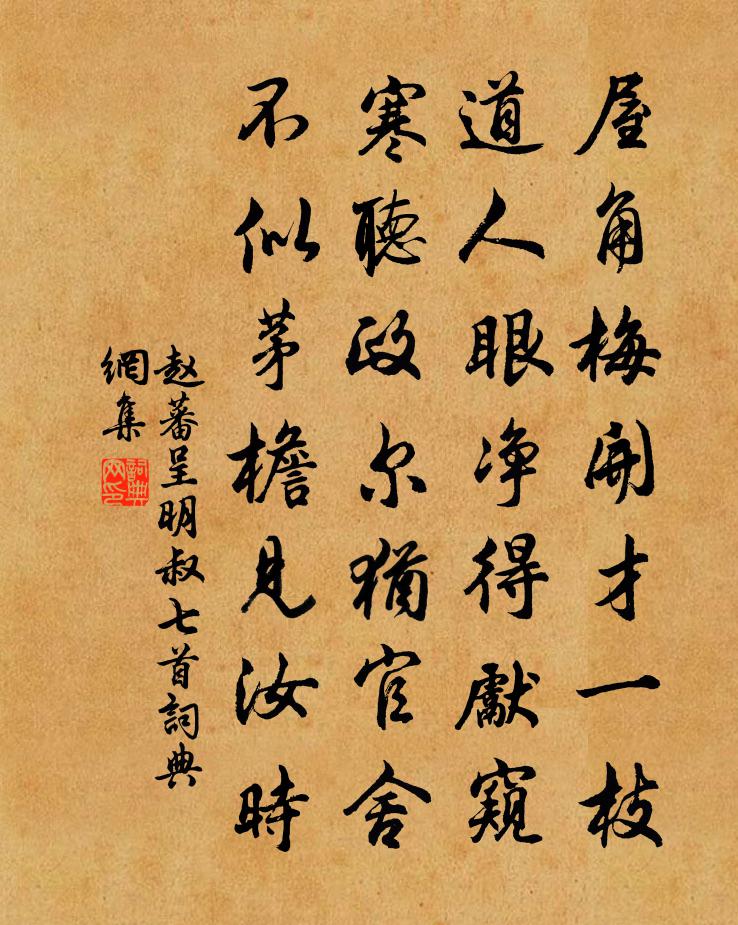 屋角梅開才一枝
道人眼净得獻窺
寒聽政尔猶官舍
不似茅檐見汝時
赵蕃呈明叔七首詞典
網集
詞典
网印